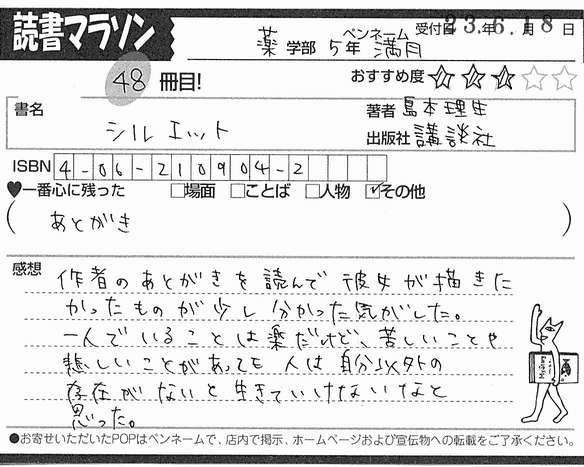 読書マラソン
薬 学部 5年 ペンネーム 満月 受付日 23.年6.月18日
48 冊目! おすすめ度 ☆☆☆☆☆
書名 シルエット 著者 島本理生
出版社 講談社
ISBN 4-06-210904-2
♥一番心に残った □場面 □ことば □人物 ☑その他
( あとがき )
感想 作者のあとがきを読んで彼女が描きた
かったものが少し分かった気がした。
一人でいることは楽だけど、苦しいことや
悲しいことがあっても人は自分以外の
存在がないと生きていけないなと
思った。
●お寄せいただいたPOPはペンネームで、店内で掲示、ホームページおよび宣伝物への転載をご了承ください。